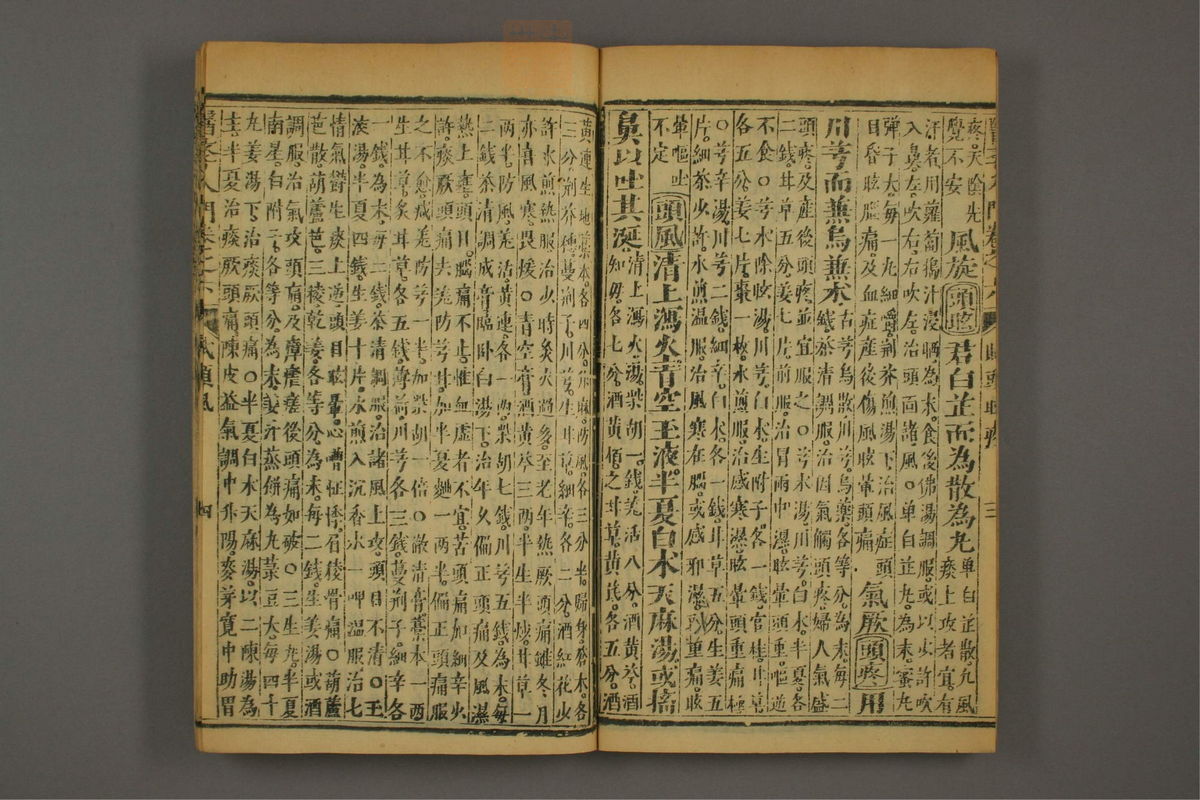 疼天陰先
覺不安
風旋頭眩君白芷而為散為丸
單白芷散丸風
痰上攻者宜有
汗者用蘿蔔搗汁浸晒為末食後佛湯調服或以少許吹
入鼻左吹右右吹左治頭面諸風○單白芷丸為末蜜丸
彈子大每一丸細嚼荊芥煎湯下治風症頭
目昏眩腦痛及血症產後傷風眩暈頭痛
氣厥頭疼用
川芎而兼烏兼朮
古芎烏散川芎烏藥各等分為末每二
錢茶清調服治因氣觸頭疼婦人氣盛
頭疼及產後頭疼並宜服之○芎朮湯川芎白朮半夏各
二錢甘草五分姜七片煎服治冒雨中濕眩暈頭重嘔逆
不食○芎朮除眩湯川芎白朮生附子各一錢官桂甘草
各五分姜七片棗一枚水煎服治感寒濕眩暈頭重痛極
○芎辛湯川芎二錢細辛白朮各一錢甘草五分生姜五
片細茶少許水煎温服治風寒在腦或感邪濕頭重痛眩
暈嘔吐
不定
頭風清上瀉火青空玉液半夏白朮天麻湯或搐
鼻以吐其涎
清上瀉火湯柴胡一錢羌活八分酒黃芩
知母各七分酒黃栢炙甘草黃芪各五分酒
黃連生地藁本各四分升麻防風各三分半歸身蒼朮各
三分荊芥穗蔓荊子川芎生甘草細辛各二分酒紅花少
許水煎熱服治少時灸火過多至老年熱厥頭痛雖冬月
亦喜風寒畏煖○青空膏酒黃芩三兩半生半炒甘草一
兩半防風羌活黃連各一兩柴胡七錢川芎五錢為末每
二錢茶清調成膏臨卧白湯下治年久偏正頭痛及風濕
熱上壅頭目腦痛不止惟血虛者不宜苦頭痛加細辛少
許痰厥頭痛去羌防芎甘加半夏麯一兩半偏正頭痛服
之不愈減羌防芎一半加柴胡一倍○澈清膏藁本一
生甘草炙甘草各五錢薄荷川芎各三錢蔓荊子細辛各
一錢為末每二錢茶清調服治諸風上攻頭目不清○玉
液湯半夏四錢生姜十片水煎入沉香水一呷温服治七
情氣鬱生痰上逆頭目眩暈心嘈怔悸眉稜骨痛○葫蘆
芭散葫蘆芭三稜乾姜各等分為末每二錢生姜湯或酒
調服治氣攻頭痛及瘴瘧瘥後頭痛如破○三生丸半夏
南星白附子各等分為末姜汁蒸餅為丸菉豆大每四十
丸姜湯下治痰厥頭痛○半夏白朮天麻湯以二陳湯為
主半夏治痰厥頭痛陳皮益氣調中升陽麥芽寬中助胃
醫學入門卷之六
頭風
四